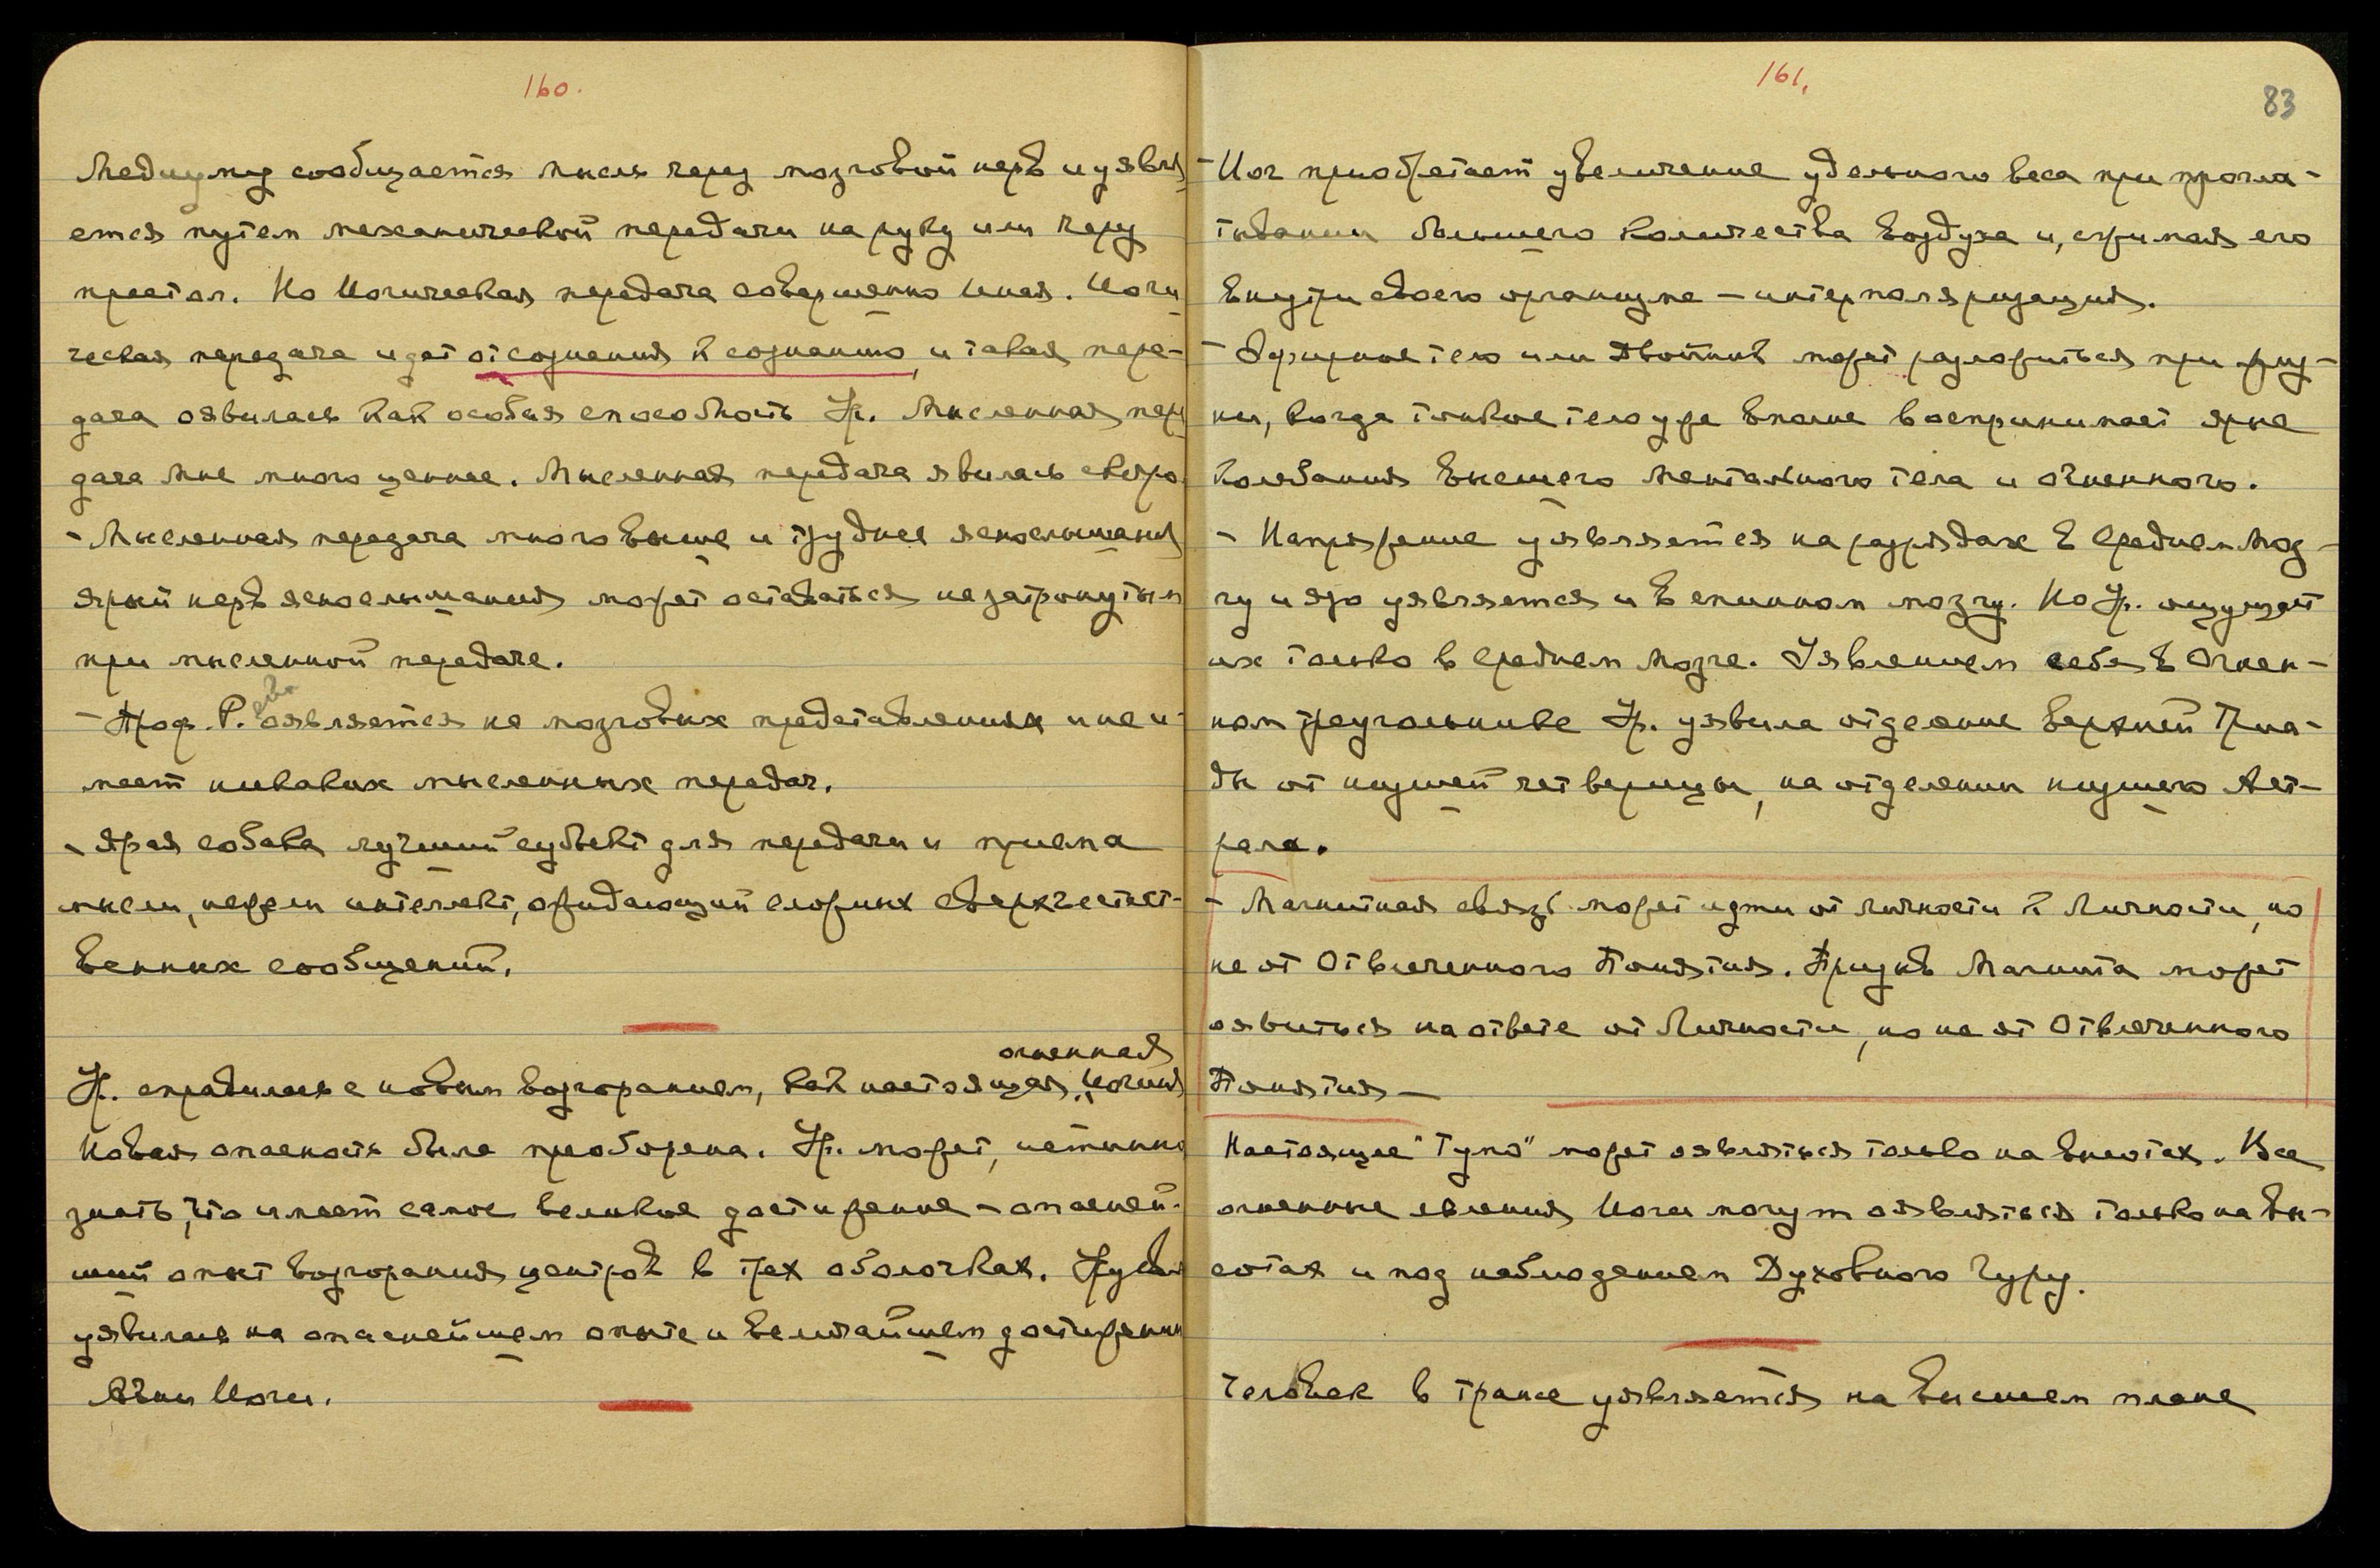 160.
Медиуму сообщается мысль через мозговой нерв и уявля-
ется путем механической передачи на руку или через
престол. Но Йогическая передача совершенно иная. Йоги-
ческая передача идет от сознания к сознанию, и такая пере-
дача оявилась как особая способность Ур. Мысленная пере-
дача Мне много ценнее. Мысленная передача явилась скоро
- Мысленная передача много выше и труднее яснослышания
ярый нерв яснослышания может оставаться незатронутым
при мысленной передаче.
- Проф. Р. оявляется на мозговых представлениях и не и-
меет никаких мысленных передач.
- Ярая собака лучший субъект для передачи и приема
мысли, нежели интеллект, ожидающий сложных сверхчувст-
венных сообщений.
огненная
Ур. справилась с новым возгоранием, как настоящая Йогиня
Новая опасность была преоборена. Ур. может, истинно
знать, что имеет самое великое достижение - опасней-
ший опыт возгорания центров в трех оболочках. Урусвати
уявилась на опаснейшем опыте и величайшем достижении
Агни Йоги.
161.
83
- Йог приобретает увеличение удельного веса при прогла-
тывании большего количества воздуха и, сжимая его
внутри своего организма - интерполяризация.
- Эфирное тело или Двойник может разложиться при жиз-
ни, когда тонкое тело уже вполне воспринимает ярые
колебания высшего ментального тела и огненного.
- Напряжение уявляется на разрядах в Среднем Моз-
гу и яро уявляется и в спинном мозгу. Но Ур. ощущает
их только в Среднем Мозге. Уявлением себя в Огнен-
ном треугольнике Ур. уявила отделение Верхней Триа-
ды от низшей четверицы, на отделении низшего Аст-
рала.
- Магнитная связь может идти от личности к Личности, но
не от Отвлеченного Понятия. Признак Магнита может
оявиться на ответе от Личности, но не от Отвлеченного
Понятия -
Настоящее "Тумо" может оявляться только на высотах. Все
огненные явления Йоги могут оявляться только на вы-
сотах и под наблюдением Духовного Гуру.
Человек в трансе уявляется на высшем плане